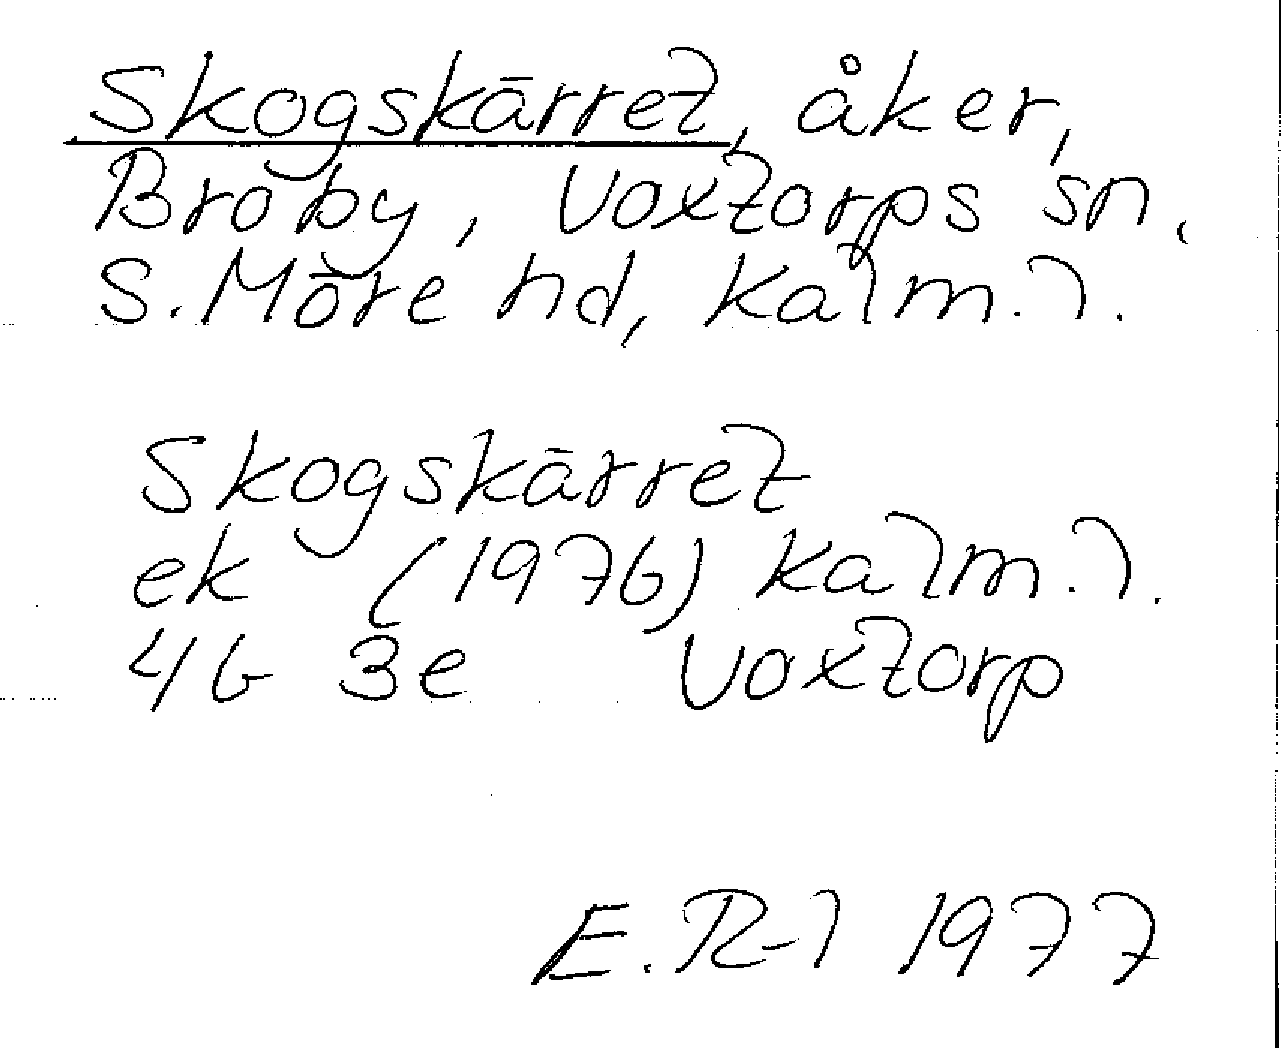 Skogskärret, åker,
Broby, Voxtorps sn.
S. Möre hd, Kalm. l.
Skogskärret
ek (1976) Kalm. l.
4G 3e Voxtorp
E. R-l 1977